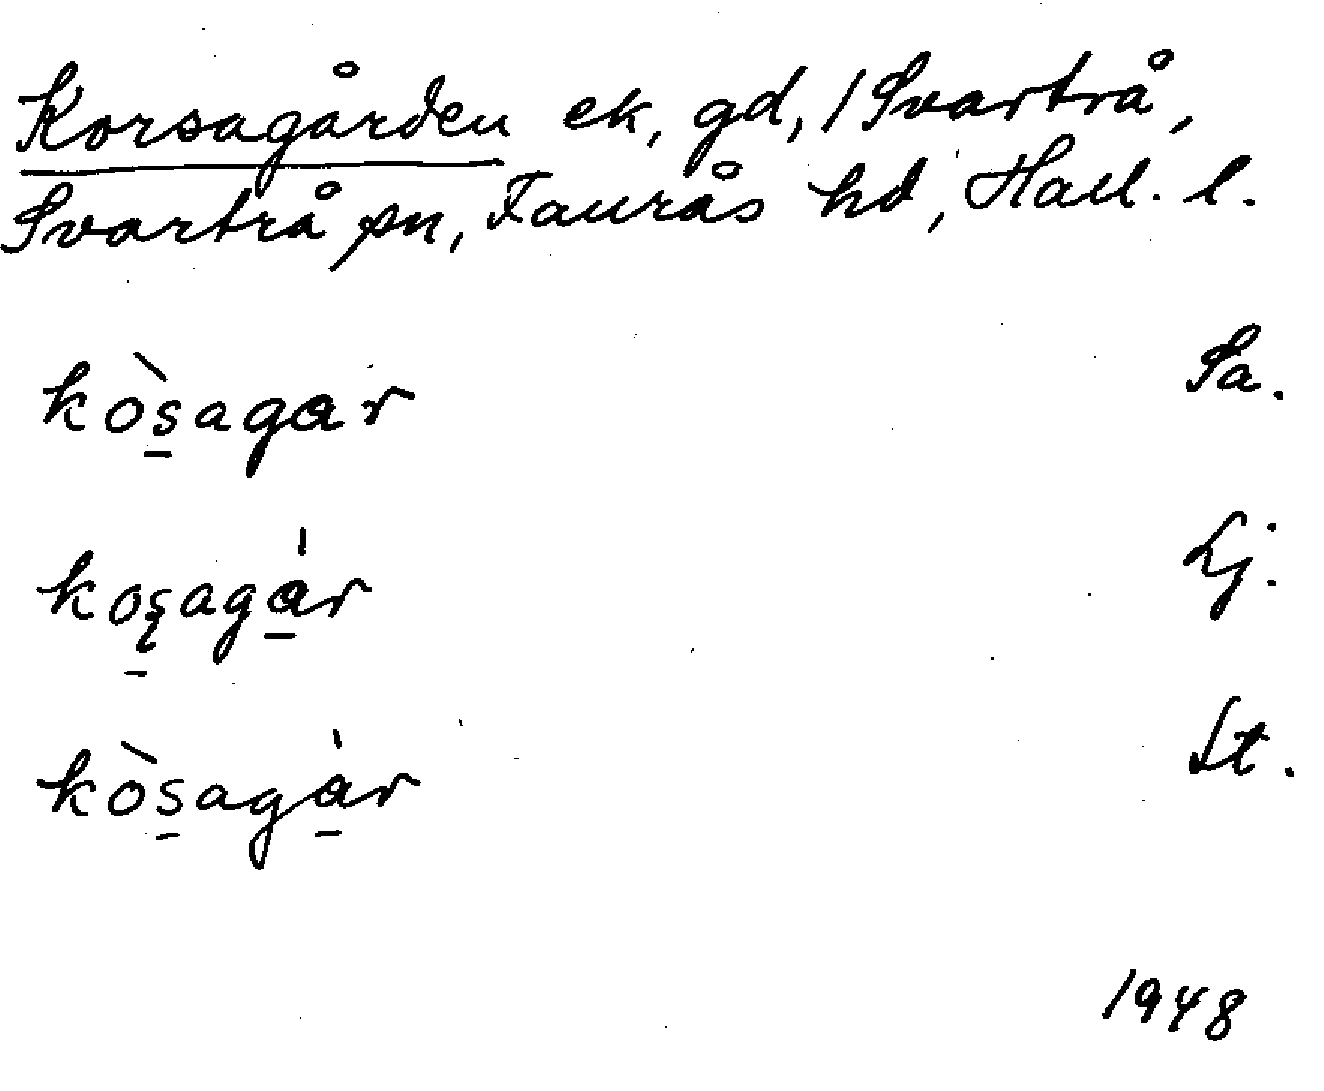 Korsagården ek, gd, 1 Svartrå,
Svartrå sn, Faurås hd, Hall. l.
kòs̱agar Sa.
koʂagár Lj.
kòs̱agá̱r St.
1948